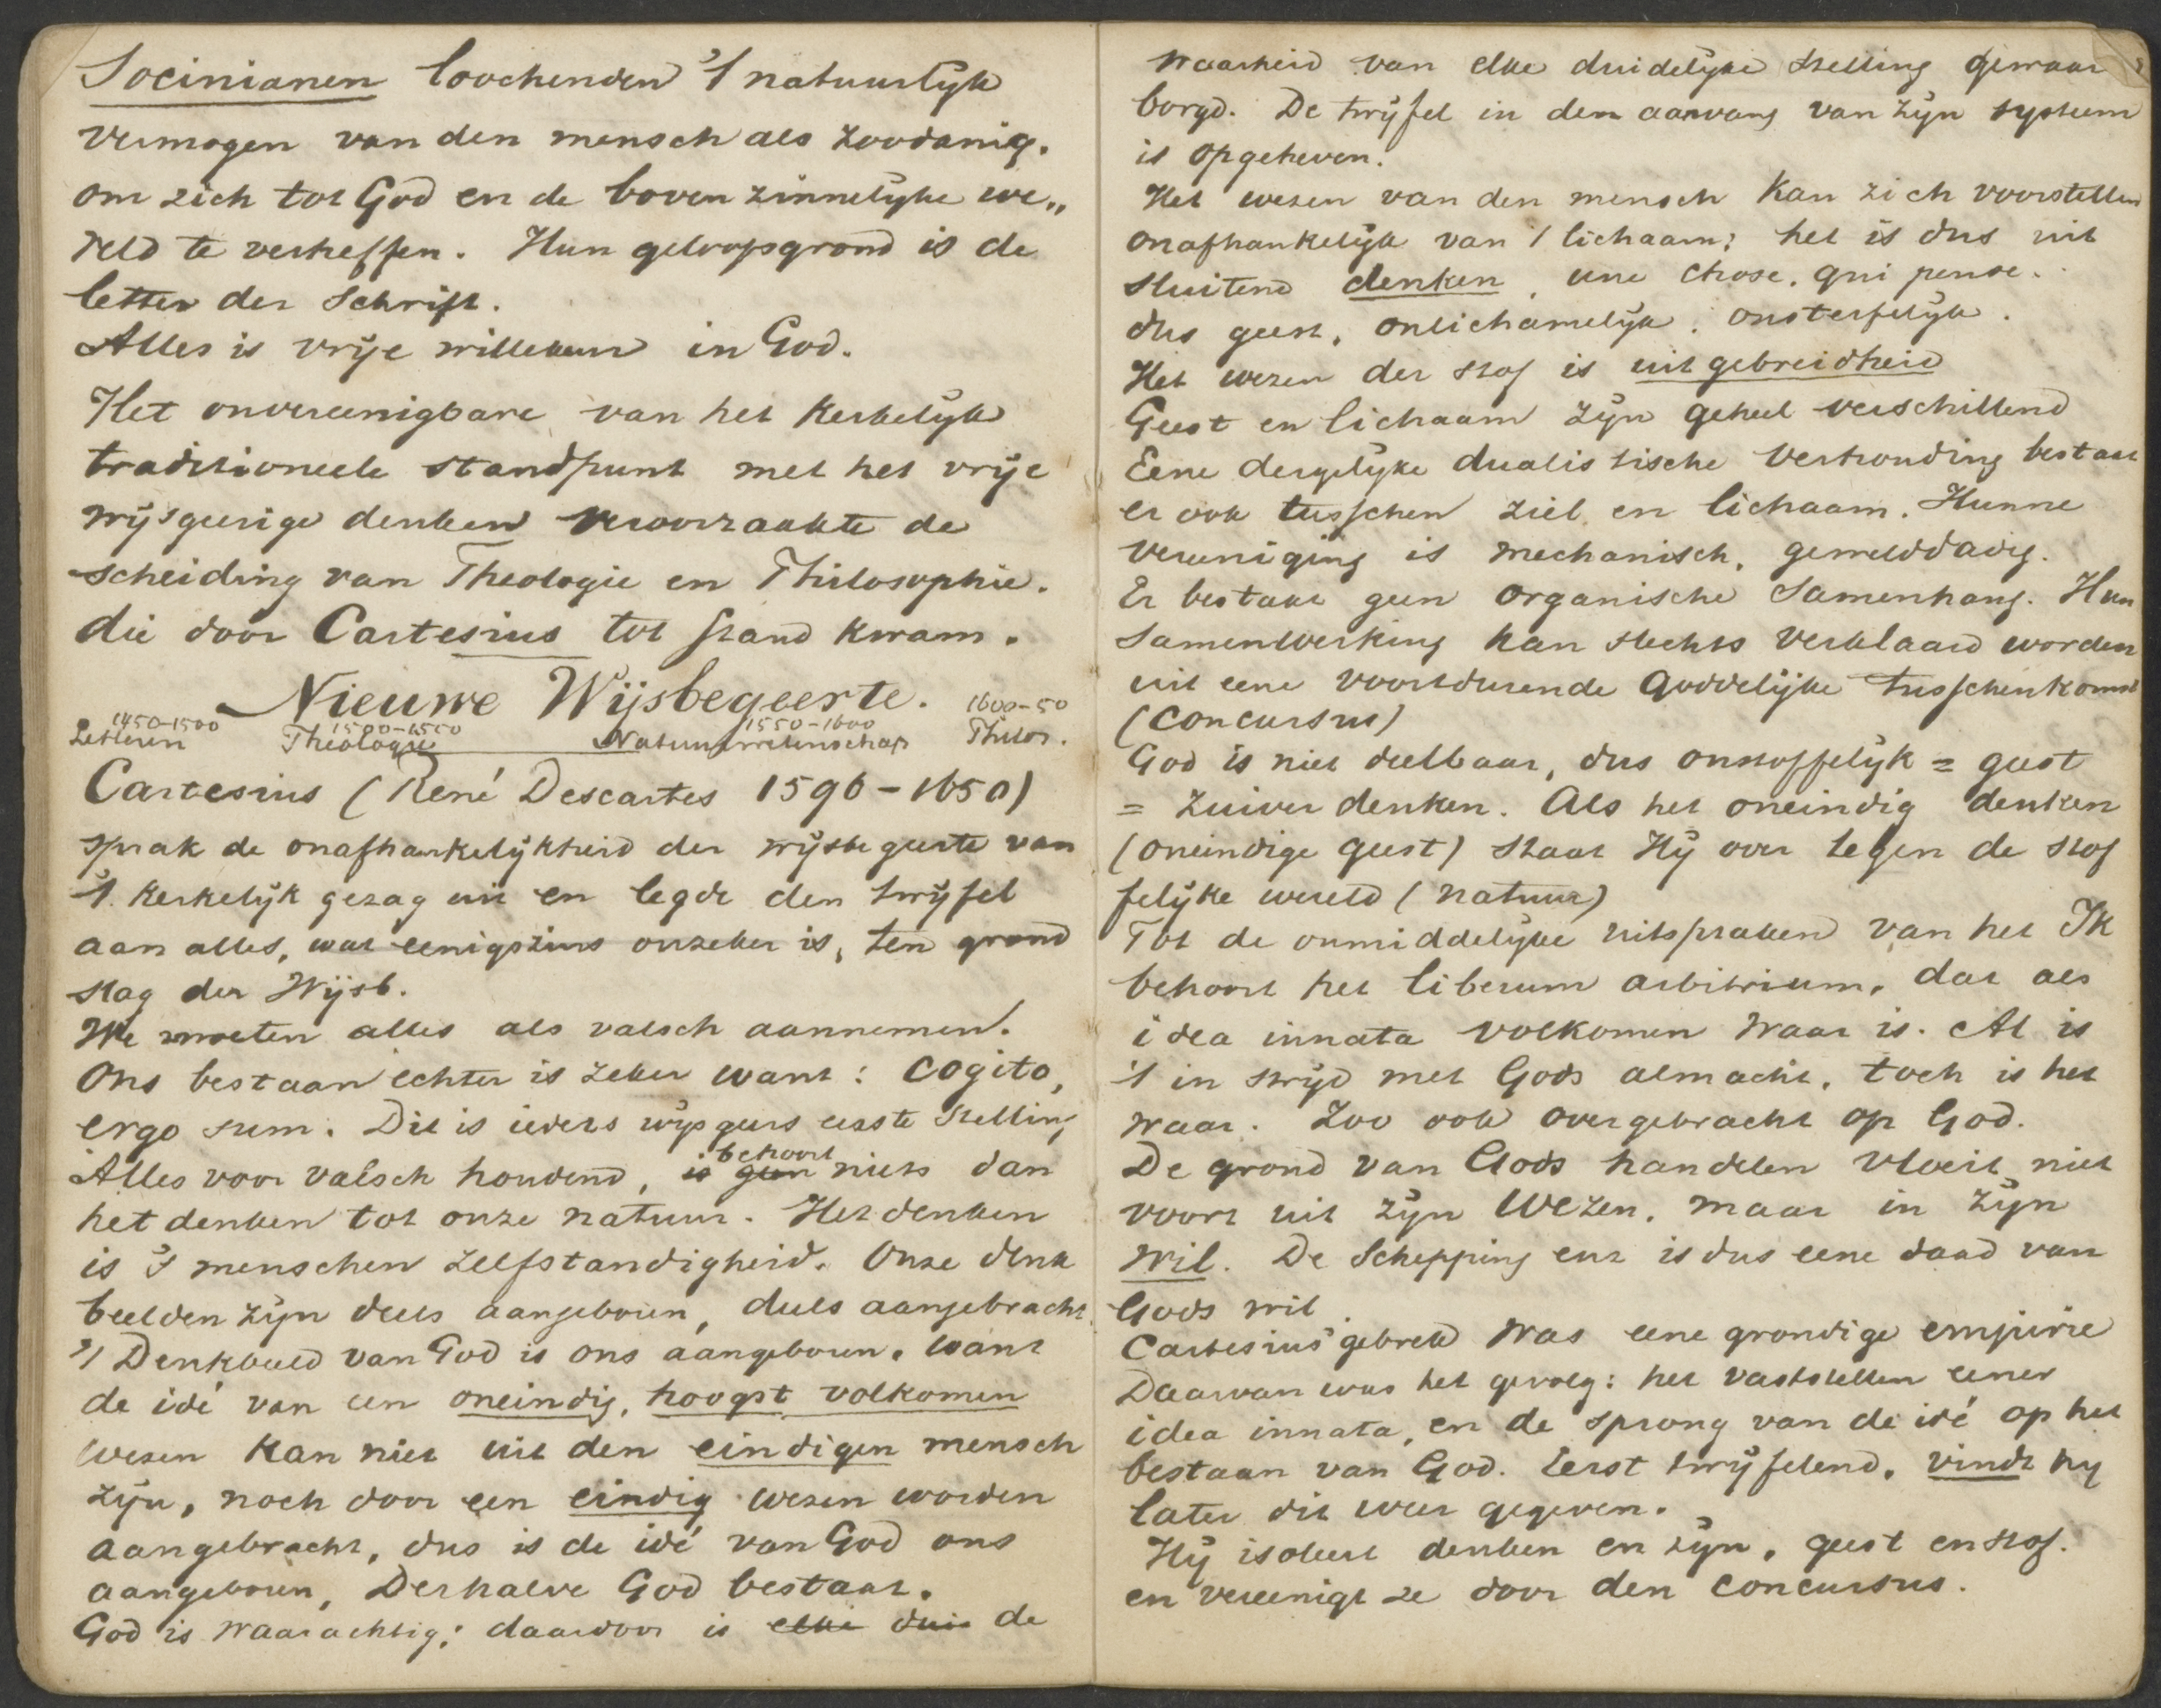 Socinianen loochenden 't natuurlyk
vermogen van den mensch als zoodanig.
om zich tot God en de boven zinnelyke we„
reld te verheffen. Hun geloofsgrond is de
letter der Schrift.
Alles is vrije willekeur in God.
Het onvereenigbare van het Kerkelyk
traditioneele standpunt met het vrije
wijsgeerige denken veroorzaakte de
scheiding van Theologie en Philosophie.
die door Cartesius tot stand kwam.
Nieuwe Wijsbegeerte. 1600-50
1450-1500 1500-1550 1550-1600
Letteren Theologie Natuurwetenschap Philos.
Cartesius (René Descartes 1596-1650)
sprak de onafhankelijkheid der wijsbegeerte van
't Kerkelijk gezag uit en legde den twijfel
aan alles, wat eenigszins onzeker is, ten grond
slag der Wijsb.
We moeten alles als valsch aannemen.
Ons bestaan echter is zeker want: cogito,
ergo sum. Dit is ieders wijsgeers eerste stelling
Alles voor valsch houdend, is geen behoort niets dan
het denken tot onze natuur. Het denken
is 's menschen zelfstandigheid. Onze denk
beelden zyn deels aangeboren, deels aangebracht
't Denkbeeld van God is ons aangeboren. want
de idé van een oneindig, hoogst volkomen
wezen kan niet uit den eindigen mensch
zyn, noch door een eindig wezen worden
aangebracht, dus is de idé van God ons
aangeboren, Derhalve God bestaat.
God is waarachtig; daardoor is elke duis de
waarheid van elke duidelyke stelling gewaar
borgd. De twyfel in den aanvang van zyn systeem
is opgeheven.
Het wezen van den mensch kan zich voorstellen
onafhankelyk van 't lichaam; het is dus uit
sluitend denken, une chose, qui pense.
dus geest, onlichamelyk, onsterfelyk.
Het wezen der stof is uitgebreidheid
Geest en lichaam zyn geheel verschillend
Eene dergelyke dualistische verhouding bestaat
er ook tusschen ziel en lichaam. Hunne
vereeniging is mechanisch, gewelddadig.
Er bestaat geen organische samenhang. Hun
samenwerking kan slechts verklaard worden
uit eene voortdurende goddelijke tusschenkomst
(concursus)
God is niet deelbaar, dus onstoffelyk = geest
= zuiver denken. Als het oneindig denken
(oneindige geest) staat Hij over tegen de stof
felyke wereld (natuur)
Tot de onmiddelyke uitspraken van het Ik
behoort het liberum arbitrium, dat als
idea innata volkomen waar is. Al is
't in stryd met Gods almacht, toch is het
waar. Zoo ook overgebracht op God.
De grond van Gods handelen vloeit niet
voort uit zyn wezen, maar in zyn
Wil. De Schepping enz is dus eene daad van
Gods wil.
Cartesius' gebrek was eene grondige empirie
Daarvan was het gevolg: het vaststellen eener
idea innata, en de sprong van de idé op het
bestaan van God. Eerst twyfelend, vindt hy
later dit weer gegeven.
Hij isoleert denken en zyn, geest en stof.
en vereenigt ze door den concursus.